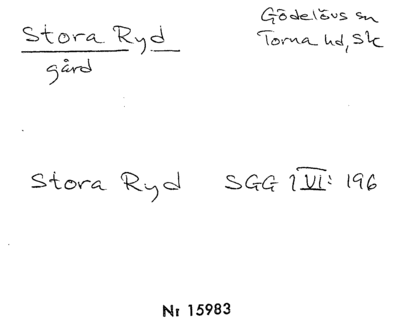 Stora Ryd
gård
Gödelövs sn
Torna hd, Sk
Stora Ryd SGG 1 VI: 196
Nr 15983